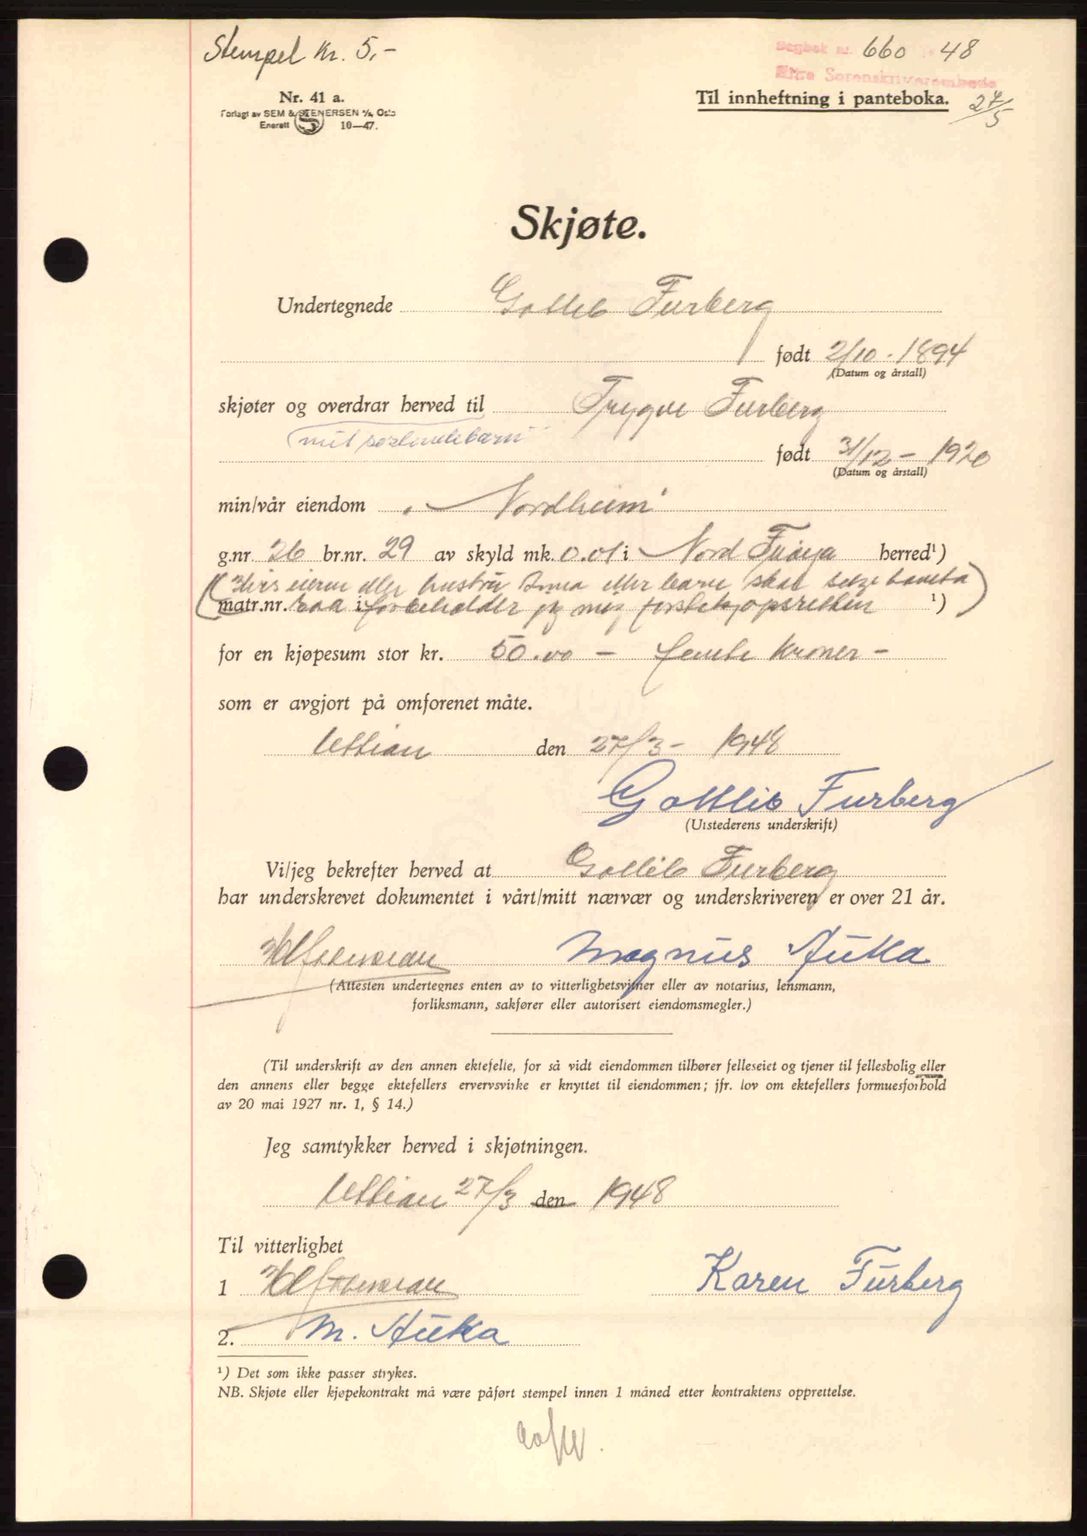 Stempel kr. 5,-
Dagbok nr. 660 48
Sorenskriverembede
Nr. 41 a.
Til innheftning i panteboka. 27/5
Forlagt av SEM & STENERSEN A/S, Oslo
Enerett 10—47.
Skjøte.
Undertegnede Gottlib Furberg
født 2/10 - 1894
(Datum og årstall)
skjøter og overdrar herved til Trygve Furberg
mit
født 31/12 - 1920
(Datum og årstall)
min/vår eiendom "Nordheim"
g.nr. 26 br.nr. 29 av skyld mk. 0.01 i Nord Frøya herred¹)
(Hvis eieren eller hustru eller barn skal
matr.nr. i forbeholder jeg mig forstekjøpsretten ¹)
for en kjøpesum stor kr. 50.00 — femti kroner -
som er avgjort på omforenet måte.
Uttian den 27/3 - 1948
Gottlib Furberg
(Utstederens underskrift)
Vi/jeg bekrefter herved at Gottlib Furberg
har underskrevet dokumentet i vårt/mitt nærvær og underskriveren er over 21 år.
Magnus Auka
(Attesten undertegnes enten av to vitterlighetsvitner eller av notarius, lensmann,
forliksmann, sakfører eller autorisert eiendomsmegler.)
(Til underskrift av den annen ektefelle, for så vidt eiendommen tilhører felleseiet og tjener til fellesbolig eller
den annens eller begge ektefellers ervervsvirke er knyttet til eiendommen; jfr. lov om ektefellers formuesforhold
av 20 mai 1927 nr. 1, § 14.)
Jeg samtykker herved i skjøtningen.
Uttian 27/3 den 1948
Til vitterlighet
1
Karen Furberg
2. M. Auka
¹) Det som ikke passer strykes.
NB. Skjøte eller kjøpekontrakt må være påført stempel innen 1 måned etter kontraktens opprettelse.